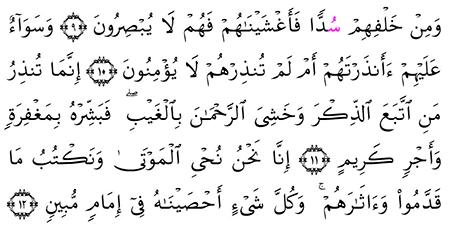 وَمِنْ خَلْفِهِمْ سُدًّا فَأَغْشَيْنَٰهُمْ فَهُمْ لَا يُبْصِرُونَ ﴿٩﴾ وَسَوَآءٌ
عَلَيْهِمْ ءَأَنذَرْتَهُمْ أَمْ لَمْ تُنذِرْهُمْ لَا يُؤْمِنُونَ ﴿١٠﴾ إِنَّمَا تُنذِرُ
مَنِ ٱتَّبَعَ ٱلذِّكْرَ وَخَشِىَ ٱلرَّحْمَٰنَ بِٱلْغَيْبِ ۖ فَبَشِّرْهُ بِمَغْفِرَةٍ
وَأَجْرٍ كَرِيمٍ ﴿١١﴾ إِنَّا نَحْنُ نُحْىِ ٱلْمَوْتَىٰ وَنَكْتُبُ مَا
قَدَّمُوا۟ وَءَاثَٰرَهُمْ ۚ وَكُلَّ شَىْءٍ أَحْصَيْنَٰهُ فِىٓ إِمَامٍ مُّبِينٍ ﴿١٢﴾